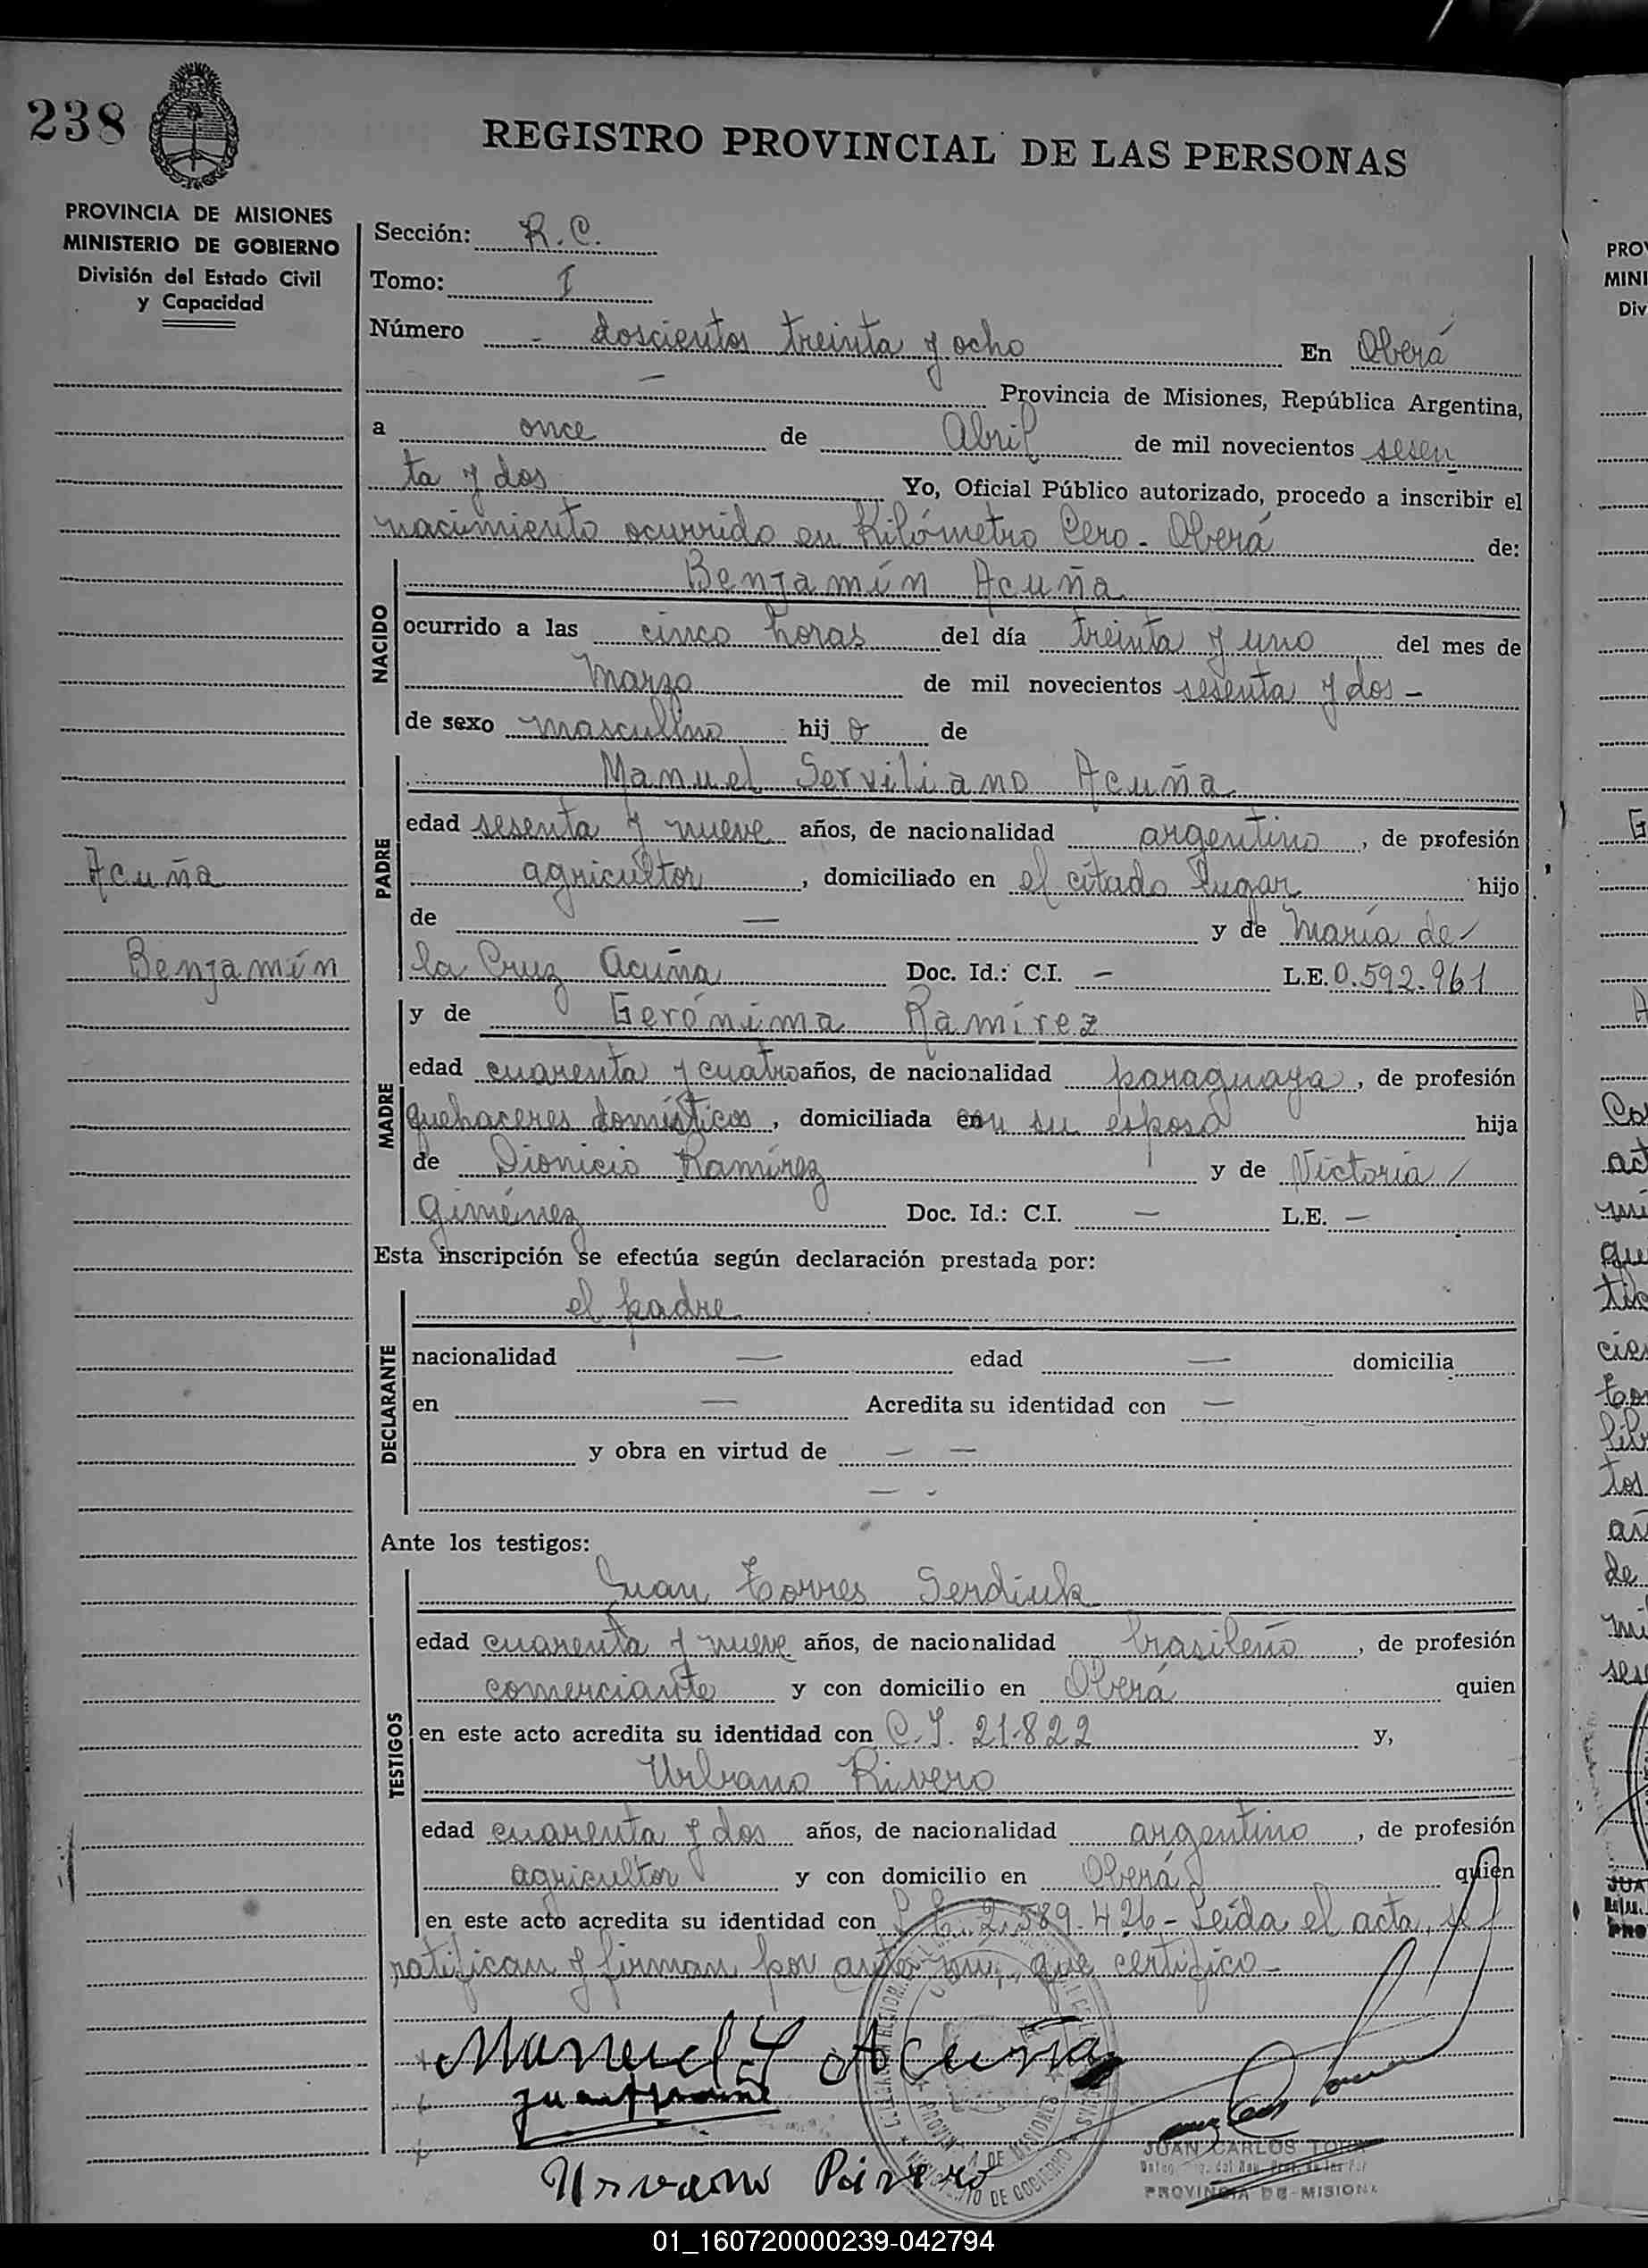 238
REGISTRO PROVINCIAL DE LAS PERSONAS
PROVINCIA DE MISIONES
MINISTERIO DE GOBIERNO
División del Estado Civil
y Capacidad
Sección: R.C.
Tomo: I
Número - doscientos treinta y ocho En Oberá
— Provincia de Misiones, República Argentina,
a once de Abril de mil novecientos sesen
ta y dos Yo, Oficial Público autorizado, procedo a inscribir el
nacimiento ocurrido en Kilómetro Cero - Oberá de:
NACIDO
Benjamín Acuña
ocurrido a las cinco horas del día treinta y uno del mes de
Marzo de mil novecientos sesenta y dos -
de sexo masculino hijo de
PADRE
Manuel Serviliano Acuña
edad sesenta y nueve años, de nacionalidad argentino, de profesión
agricultor, domiciliado en el citado lugar hijo
de — y de María de
la Cruz Acuña Doc. Id.: C.I. — L.E. 0.592.961
Acuña
Benjamín
MADRE
y de Gerónima Ramírez
edad cuarenta y cuatro años, de nacionalidad paraguaya, de profesión
quehaceres domésticos, domiciliada con su esposo hija
de Dionicio Ramírez y de Victoria
Giménez Doc. Id.: C.I. — L.E. —
Esta inscripción se efectúa según declaración prestada por:
DECLARANTE
el padre
nacionalidad — edad — domicilia
en — Acredita su identidad con —
y obra en virtud de — —
— -
Ante los testigos:
TESTIGOS
Juan Torres Serdiuk
edad cuarenta y nueve años, de nacionalidad brasileño, de profesión
comerciante y con domicilio en Oberá quien
en este acto acredita su identidad con C.I. 21.822 y,
Urbano Rivero
edad cuarenta y dos años, de nacionalidad argentino, de profesión
agricultor y con domicilio en Oberá quien
en este acto acredita su identidad con L.E. 2.589.426 - Leída el acta, se
ratifican y firman por ante mí, que certifico -
Manuel S Acuña
Urvano Rivero
JUAN CARLOS
PROVINCIA DE MISIONES
01_160720000239-042794